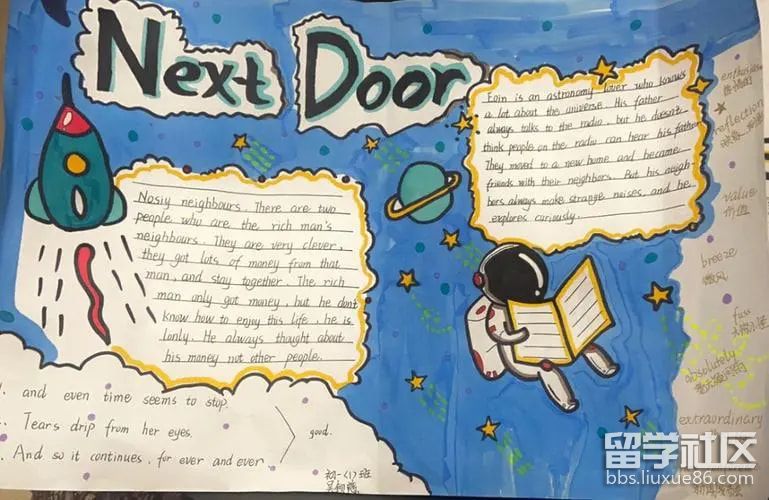 Next Door
Nosiy neighbours. There are two
people who are the rich man's
neighbours. They are very clever,
they got lots of money from that
man, and stay together. The rich
man only got money, but he don't
know how to enjoy this life, he is
lonly. He always thought about
his money not other people.
Eoin is an astronomy lover who knows
a lot about the universe. His father
always talks to the radio, but he doesn't
think people on the radio can hear his father
They moved to a new home and became
friends with their neighbors. But his neigh-
bors always make strange noises, and he
explores curiously.
reflection
value
价值
breeze
微风
fuss
absolutely
extraordinary
and even time seems to stop.
Tears drip from her eyes.
And so it continues, for ever and ever
good.
初一(1)班
留学社区
bbs.liuxue86.com